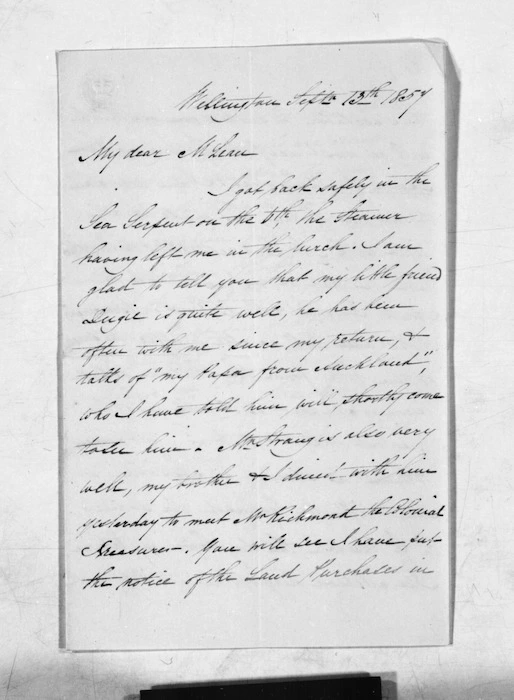 Wellington Septr 13th 1857
My dear McLean
I got back safely in the
Sea Serpent on the 6th, the Steamer
having left me in the lurch. I am
glad to tell you that my little friend
Dugie is quite well, he has been
often with me since my return, &
talks of "my Papa from Auckland",
who I have told him will shortly come
to see him. Mr Strang is also very
well, my brother & I dined with him
yesterday to meet Mr Richmond the Colonial
Treasurer. You will see I have put
the notice of the Land Purchases in